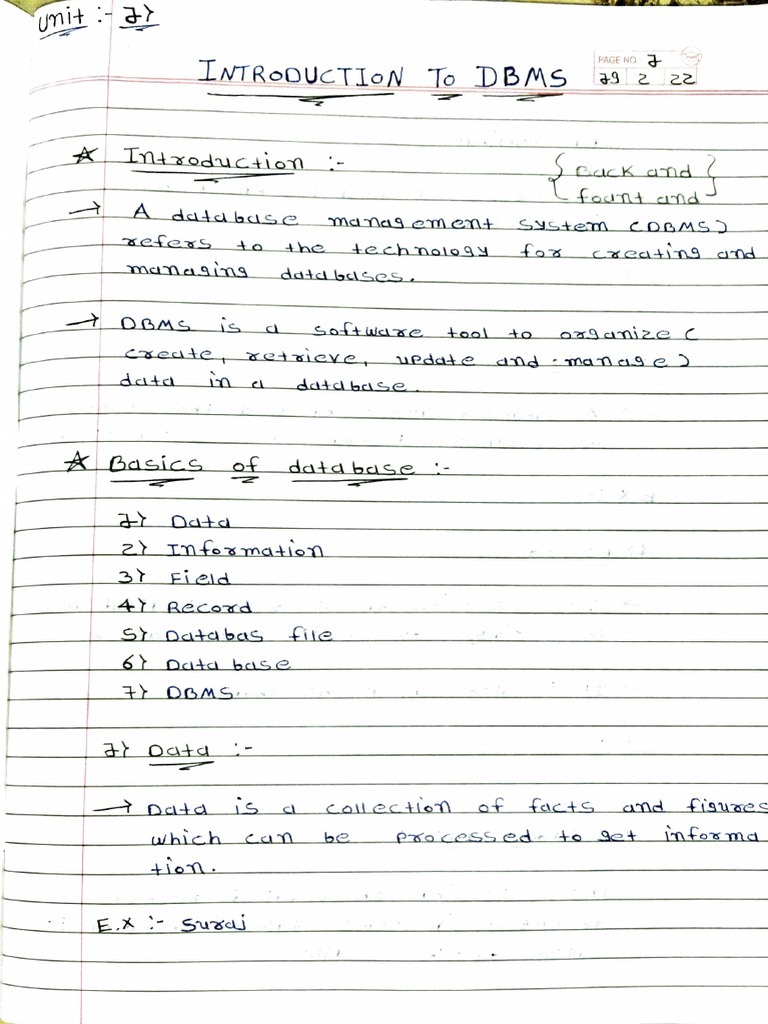 Unit :- 1)
PAGE NO. 1
INTRODUCTION TO DBMS
19 2 22
☆ Introduction :-
{ Back and }
{ fount and }
→ A database management system (DBMS)
refers to the technology for creating and
managing databases.
→ DBMS is a software tool to organize (
create, retrieve, update and manage)
data in a database.
☆ Basics of database :-
1) Data
2) Information
3) Field
4) Record
5) Databas file
6) Data base
7) DBMS.
1) Data :-
→ Data is a collection of facts and figures
which can be processed to get informa
tion.
E.X :- Suraj